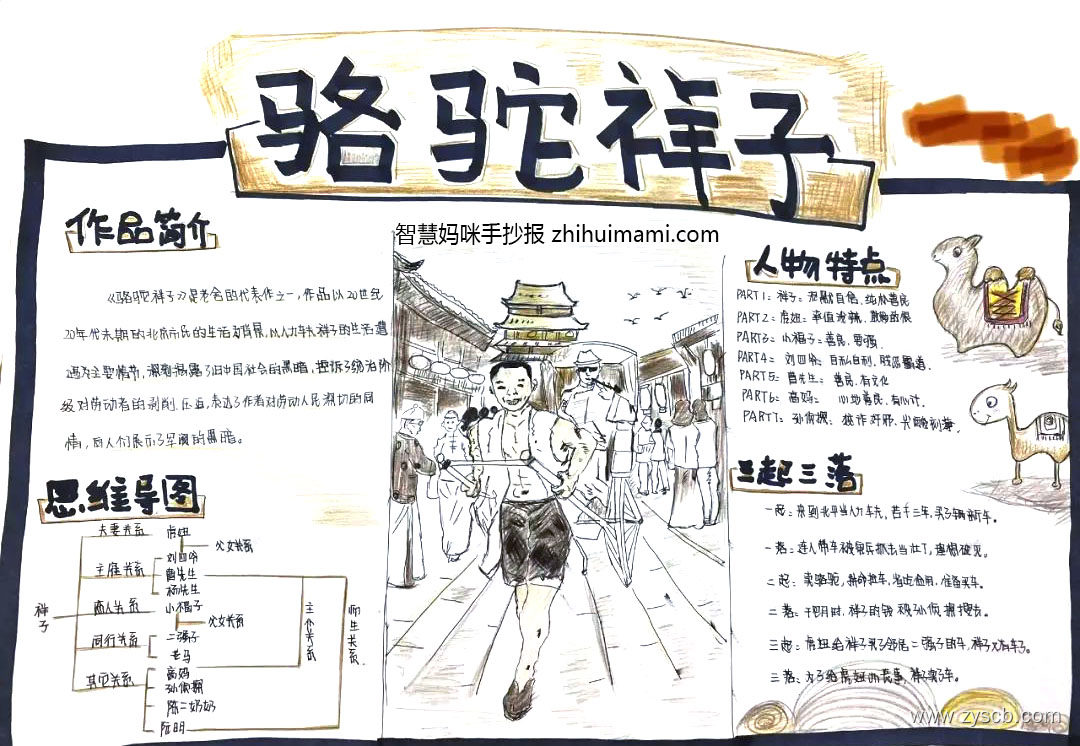 骆驼祥子
智慧妈咪手抄报 zhihuimami.com
作品简介
《骆驼祥子》是老舍的代表作之一,作品以20世纪
20年代末期的北京市民的生活为背景,以人力车夫祥子的生活遭
遇为主要情节,深刻揭露了旧中国社会的黑暗,控诉了统治阶
级对劳动者的剥削、压迫,表达了作者对劳动人民深切的同
情,向人们展示了军阀的黑暗。
思维导图
祥子
夫妻关系 虎妞
父女关系
主雇关系 刘四爷
曹先生
杨先生
商人关系 小福子
父女关系
同行关系 二强子
老马
其它关系 高妈
孙侦探
陈二奶奶
阮明
主仆关系
师生关系
人物特点
PART1: 祥子: 沉默自信、纯朴善良
PART2: 虎妞: 率直泼辣、
PART3: 小福子: 善良、要强
PART4: 刘四爷: 自私自利、
PART5: 曹先生: 善良、有文化
PART6: 高妈: 心地善良、有心计、
PART7: 孙侦探:
三起三落
一起: 来到北平当人力车夫,苦干三年,买了辆新车。
一落: 连人带车被宪兵抓去当壮丁,理想破灭。
二起: 卖骆驼,拼命拉车,省吃俭用,准备买车。
二落: 干包月时,祥子的钱被孙侦探搜去。
三起: 虎妞给祥子买了邻居二强子的车,祥子又有车了。
三落: 为了给虎妞办丧事,祥子卖了车。
www.zyscb.com